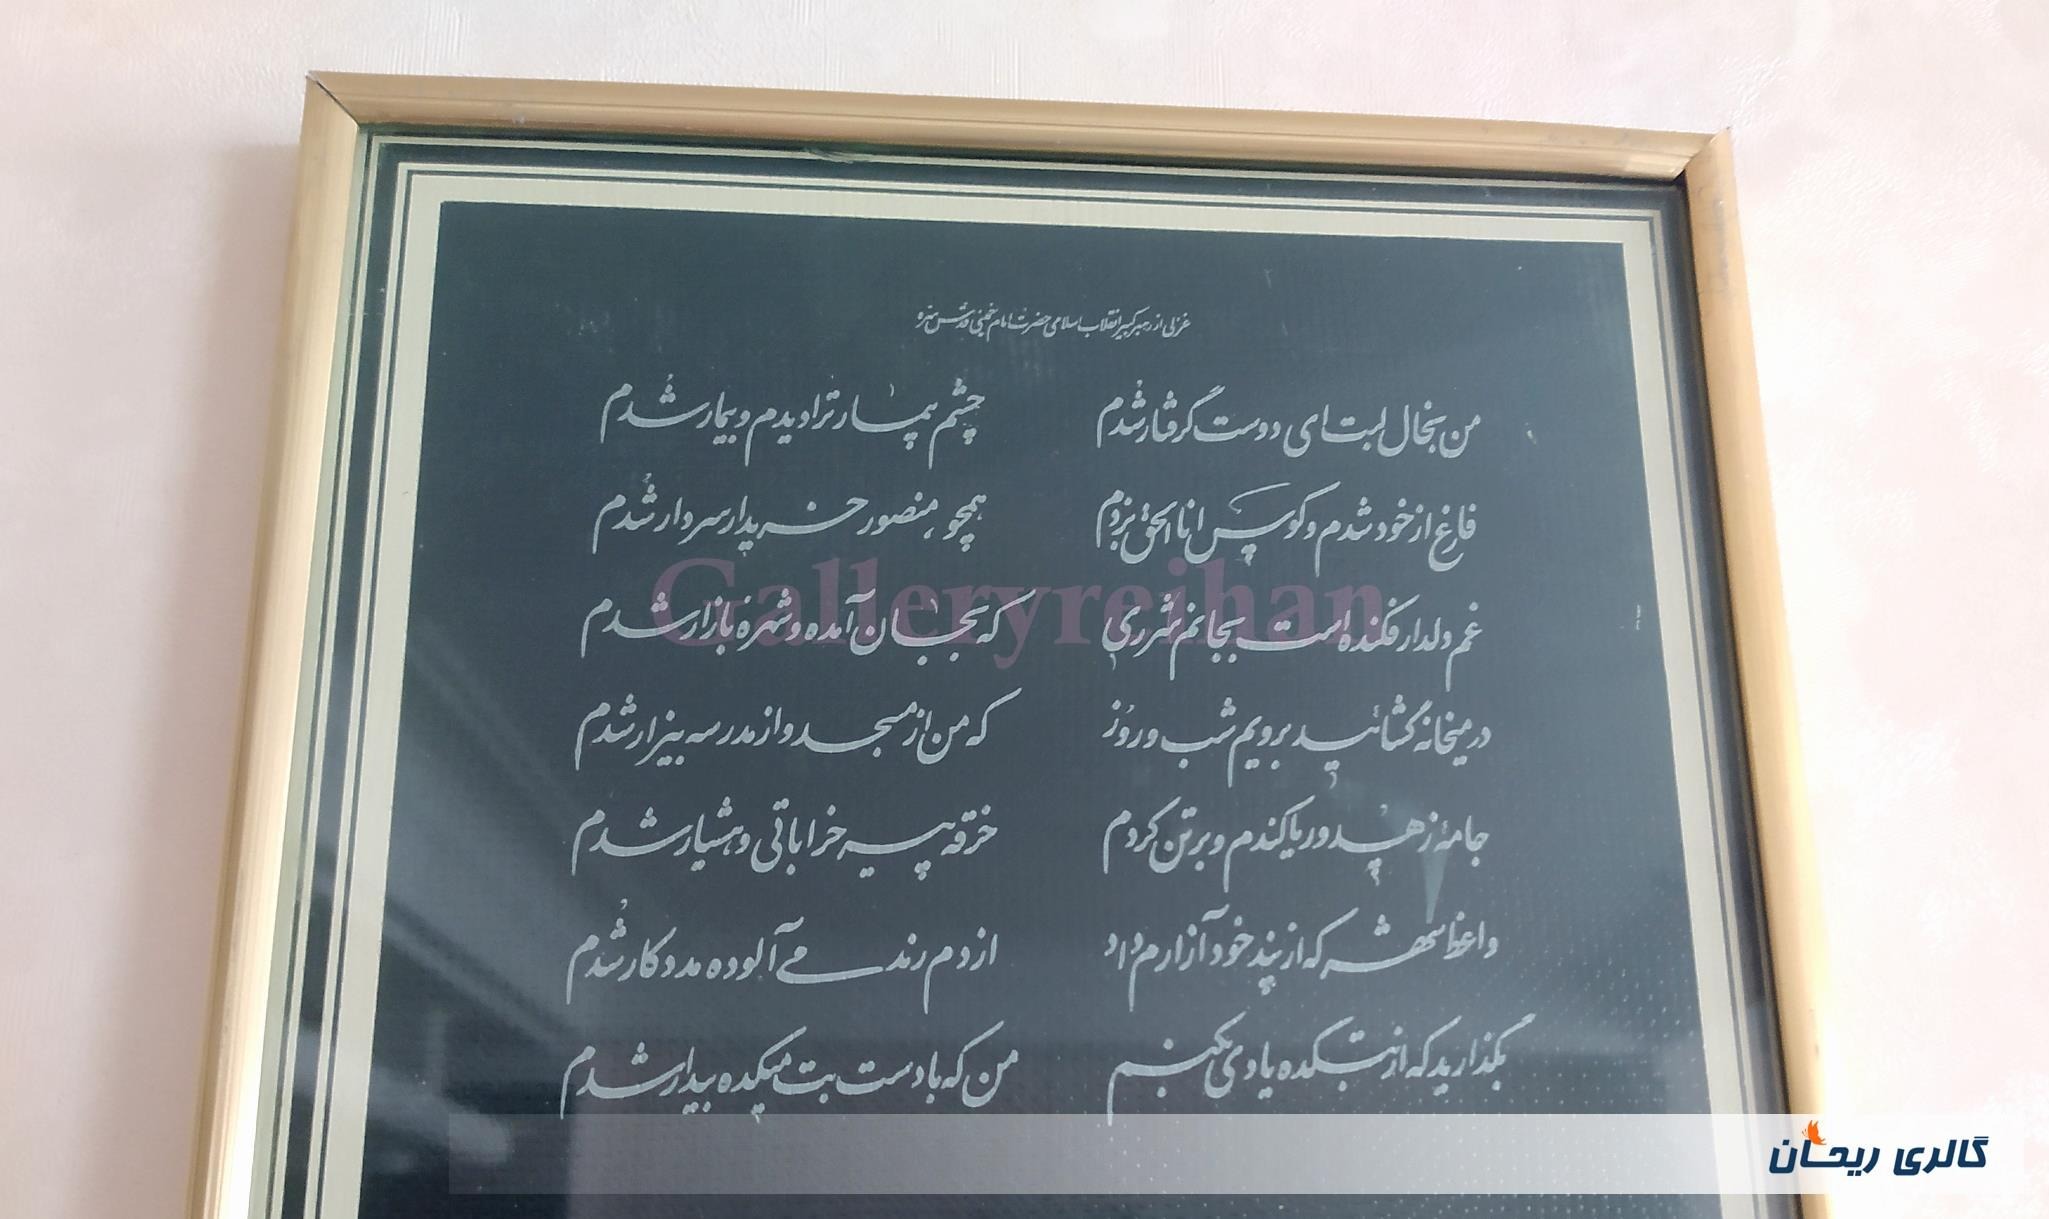 غزلی از رهبر کبیر انقلاب اسلامی حضرت امام خمینی قدس سره
من بخال لبت ای دوست گرفتار شدم چشم بیمار ترا دیدم و بیمار شدم
فارغ از خود شدم و کوس انا الحق بزدم همچو منصور خریدار سر دار شدم
غم دلدار فکنده است بجانم شرری که بجان آمده و شهره بازار شدم
در میخانه گشائید برویم شب و روز که من از مسجد و از مدرسه بیزار شدم
جامهٔ زهد و ریا کندم و بر تن کردم خرقه پیر خراباتی و هشیار شدم
واعظ شهر که از پند خود آزارم داد از دم رند می آلوده مددکار شدم
بگذارید که از بتکده یادی بکنم من که با دست بت میکده بیدار شدم
Galleryreihan
گالری ریحان